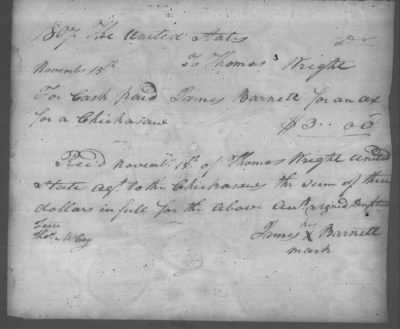 1807 The United States Dr
November 15th To Thomas Wright
For Cash paid James Barnett for an ax
for a Chickasaw $3.. 00
Recd Novembr 15th of Thomas Wright United
State agt to the Chickasaws the sum of three
dollars in full for the above actt signed
Teste his
Thos McCoy James X Barnett
mark